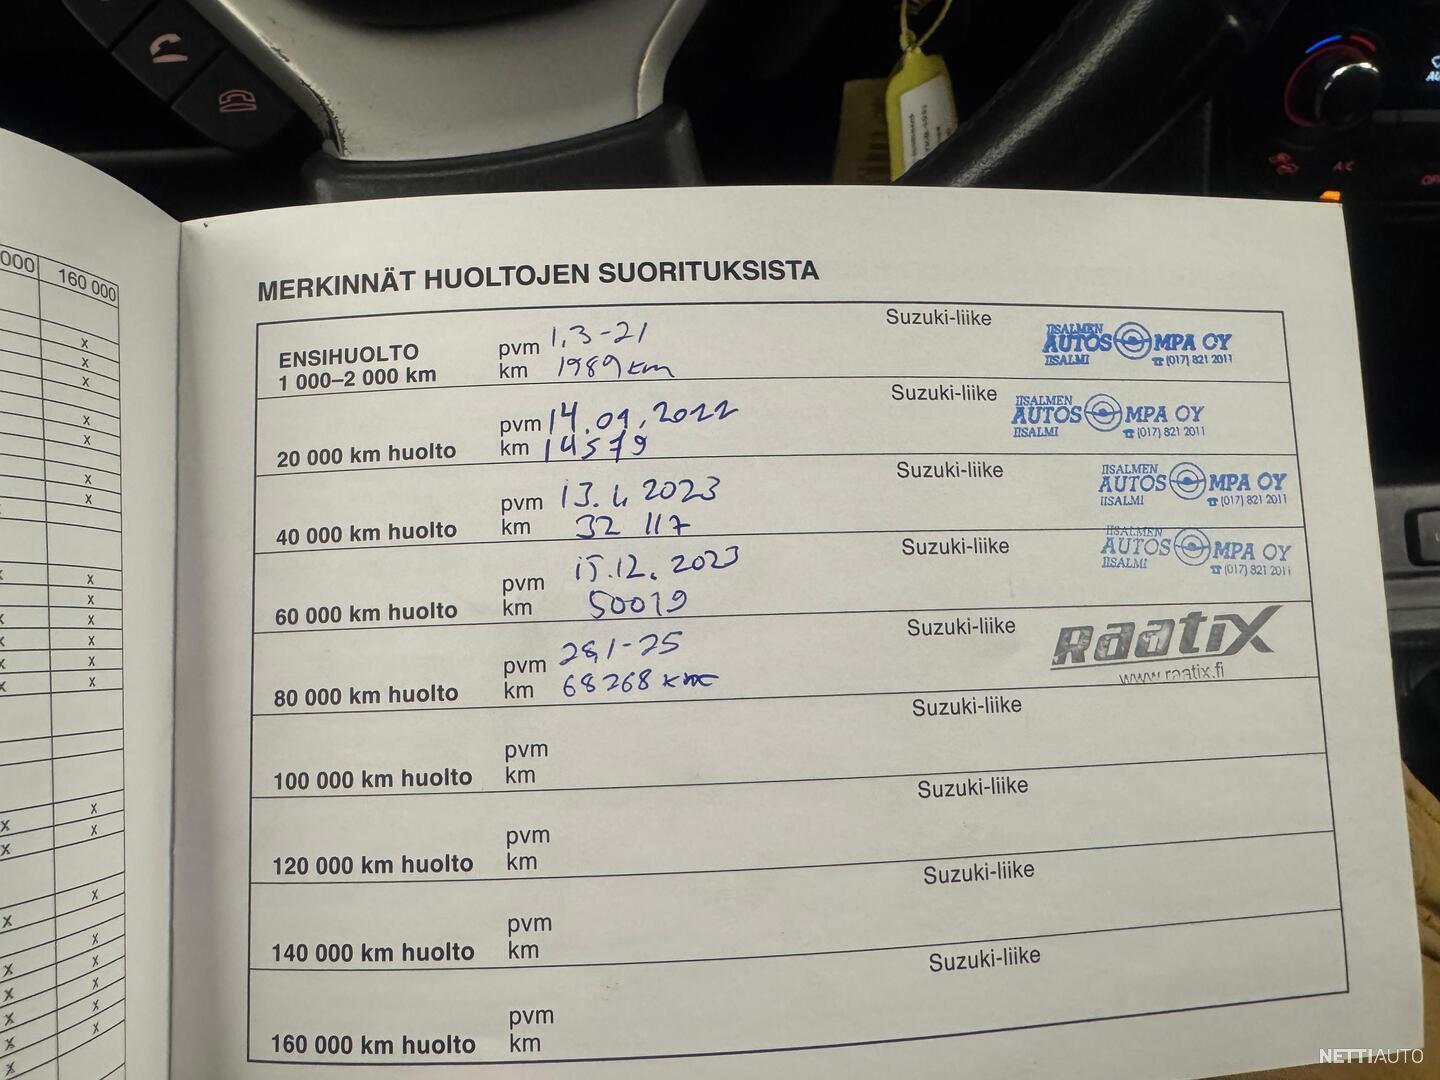 000
160 000
MERKINNÄT HUOLTOJEN SUORITUKSISTA
ENSIHUOLTO
1 000–2 000 km
pvm 1,3-21
km 1989 km
Suzuki-liike
IISALMEN
AUTOSOMPA OY
IISALMI
☎ (017) 821 2011
20 000 km huolto
pvm 14.01.2022
km 14579
Suzuki-liike
IISALMEN
AUTOSOMPA OY
IISALMI
☎ (017) 821 2011
40 000 km huolto
pvm 13.1. 2023
km 32 117
Suzuki-liike
IISALMEN
AUTOSOMPA OY
IISALMI
☎ (017) 821 2011
60 000 km huolto
pvm 15.12. 2023
km 50019
Suzuki-liike
IISALMEN
AUTOSOMPA OY
IISALMI
☎ (017) 821 2011
80 000 km huolto
pvm 28,1-25
km 68268 km
Suzuki-liike
Raatix
www.raatix.fi
100 000 km huolto
pvm
km
Suzuki-liike
120 000 km huolto
pvm
km
Suzuki-liike
140 000 km huolto
pvm
km
Suzuki-liike
160 000 km huolto
pvm
km
Suzuki-liike
A/C
NETTIAUTO